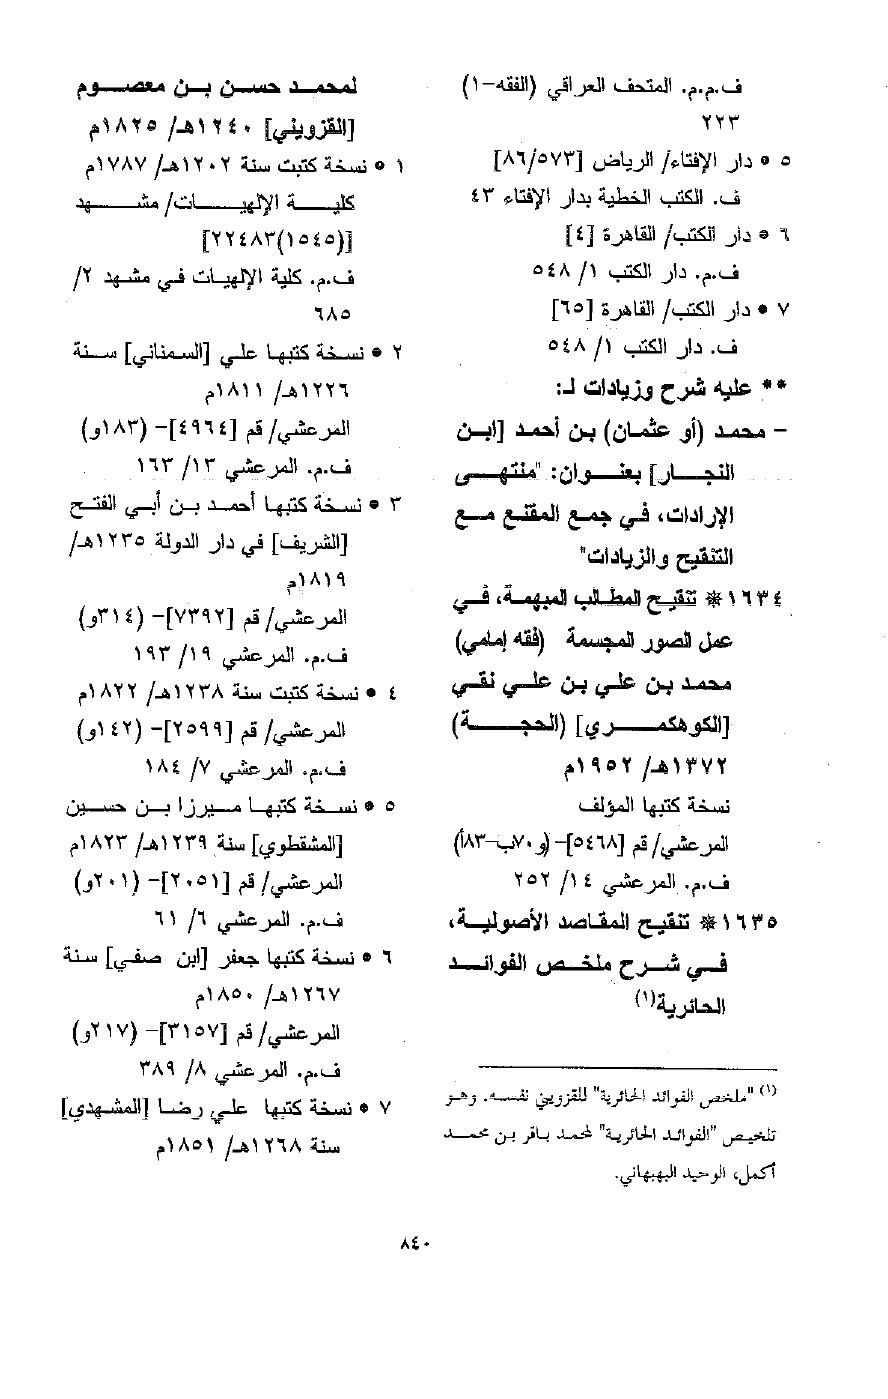 ف.م.م. المتحف العراقي (الفقه-١)
٢٢٣
٥ • دار الإفتاء/ الرياض [٨٦/٥٧٣]
ف. الكتب الخطية بدار الإفتاء ٤٣
٦ • دار الكتب/ القاهرة [٤]
ف.م. دار الكتب ١/ ٥٤٨
٧ • دار الكتب/ القاهرة [٦٥]
ف. دار الكتب ١/ ٥٤٨
** عليه شرح وزيادات لـ:
– محمد (أو عثمان) بن أحمد [ابن
النجار] بعنوان: "منتهى
الإرادات، في جمع المقنع مع
التنقيح والزيادات"
١٦٣٤ ※ تنقيح المطالب المبهمة، في
عمل الصور المجسمة (فقه إمامي)
محمد بن علي بن علي نقي
[الكوهكمري] (الحجة)
١٣٧٢هـ/ ١٩٥٢م
نسخة كتبها المؤلف
المرعشي/ قم [٥٤٦٨]- (و٧٠ب-٨٣أ)
ف.م. المرعشي ١٤/ ٢٥٢
١٦٣٥ ※ تنقيح المقاصد الأصولية،
في شرح ملخص الفوائد
الحائرية(١)
(١) "ملخص الفوائد الحائرية" للقزويني نفسه. وهو
تلخيص "الفوائد الحائرية" لمحمد باقر بن محمد
أكمل، الوحيد البهبهاني.
لمحمد حسن بن معصوم
[القزويني] ١٢٤٠هـ/ ١٨٢٥م
١ • نسخة كتبت سنة ١٢٠٢هـ/ ١٧٨٧م
كلية الإلهيات/ مشهد
[(١٥٤٥)٢٢٤٨٣]
ف.م. كلية الإلهيات في مشهد ٢/
٦٨٥
٢ • نسخة كتبها علي [السمناني] سنة
١٢٢٦هـ/ ١٨١١م
المرعشي/ قم [٤٩٦٤]- (١٨٣و)
ف.م. المرعشي ١٣/ ١٦٣
٣ • نسخة كتبها أحمد بن أبي الفتح
[الشريف] في دار الدولة ١٢٣٥هـ/
١٨١٩م
المرعشي/ قم [٧٣٩٢]- (٣١٤و)
ف.م. المرعشي ١٩/ ١٩٣
٤ • نسخة كتبت سنة ١٢٣٨هـ/ ١٨٢٢م
المرعشي/ قم [٢٥٩٩]- (١٤٢و)
ف.م. المرعشي ٧/ ١٨٤
٥ • نسخة كتبها ميرزا بن حسين
[المشقطوي] سنة ١٢٣٩هـ/ ١٨٢٣م
المرعشي/ قم [٢٠٥١]- (٢٠١و)
ف.م. المرعشي ٦/ ٦١
٦ • نسخة كتبها جعفر [ابن صفي] سنة
١٢٦٧هـ/ ١٨٥٠م
المرعشي/ قم [٣١٥٧]- (٢١٧و)
ف.م. المرعشي ٨/ ٣٨٩
٧ • نسخة كتبها علي رضا [المشهدي]
سنة ١٢٦٨هـ/ ١٨٥١م
٨٤٠